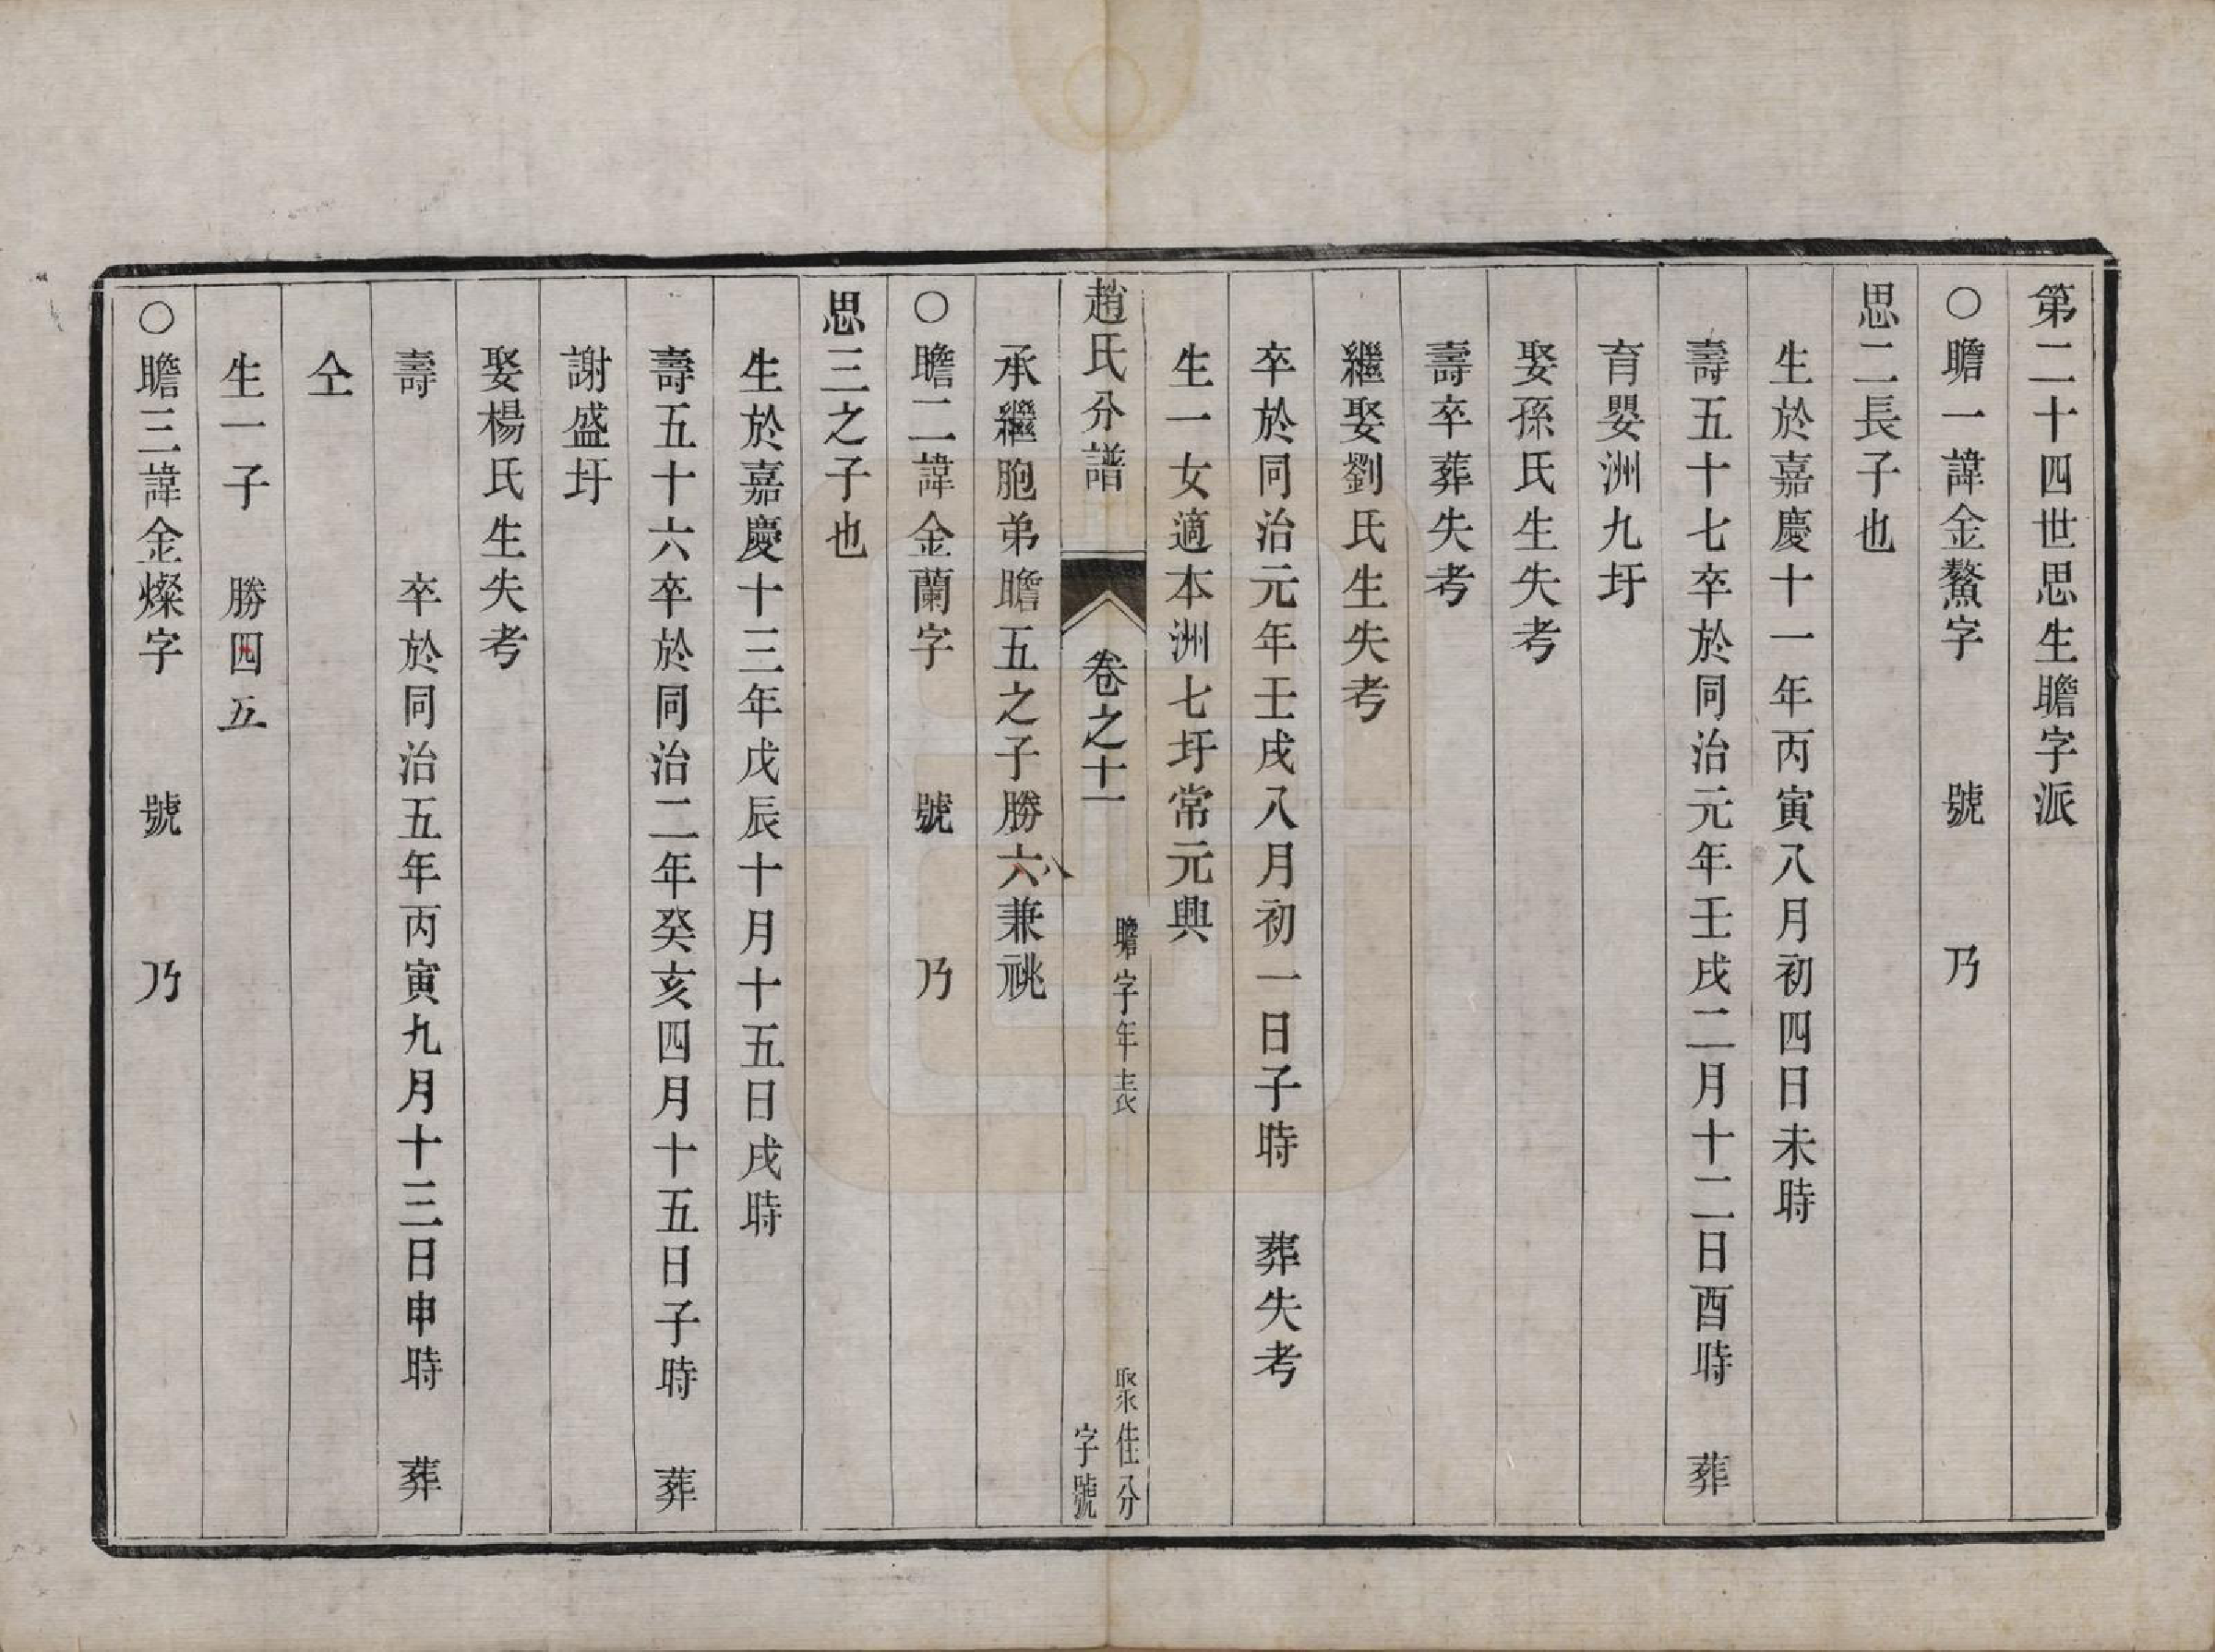 第二十四世思生瞻字派
○瞻一諱金鰲字　號　乃
思二長子也
生於嘉慶十一年丙寅八月初四日未時
壽五十七卒於同治元年壬戌二月十二日酉時　葬
育嬰洲九圩
娶孫氏生失考
壽卒葬失考
繼娶劉氏生失考
卒於同治元年壬戌八月初一日子時　葬失考
生一女適本洲七圩常元興
趙氏分譜
卷之十一
瞻字年表
聚佳分
字號
承繼胞弟瞻五之子勝六八兼祧
○瞻二諱金蘭字　號　乃
思三之子也
生於嘉慶十三年戊辰十月十五日戌時
壽五十六卒於同治二年癸亥四月十五日子時　葬
謝盛圩
娶楊氏生失考
壽　卒於同治五年丙寅九月十三日申時　葬
仝
生一子　勝四五
○瞻三諱金燦字　號　乃